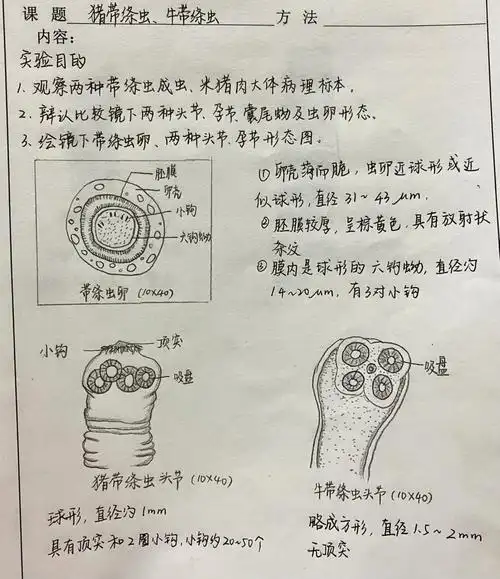 课 题 猪带绦虫、牛带绦虫 方 法
内容:
实验目的
1. 观察两种带绦虫成虫、米猪肉大体病理标本。
2. 辨认比较镜下两种头节、孕节、囊尾蚴及虫卵形态。
3. 绘镜下带绦虫卵、两种头节、孕节形态图。
胚膜
卵壳
小钩
六钩蚴
带绦虫卵 (10×40)
① 卵壳薄而脆, 虫卵近球形或近
似球形, 直径 31~43μm.
② 胚膜较厚, 呈棕黄色, 具有放射状
条纹
③ 膜内是球形的六钩蚴, 直径约
14~20μm, 有3对小钩
小钩
顶突
吸盘
猪带绦虫头节 (10×40)
球形, 直径约1mm
具有顶突和2圈小钩, 小钩约20~50个
吸盘
牛带绦虫头节 (10×40)
略成方形, 直径1.5~2mm
无顶突